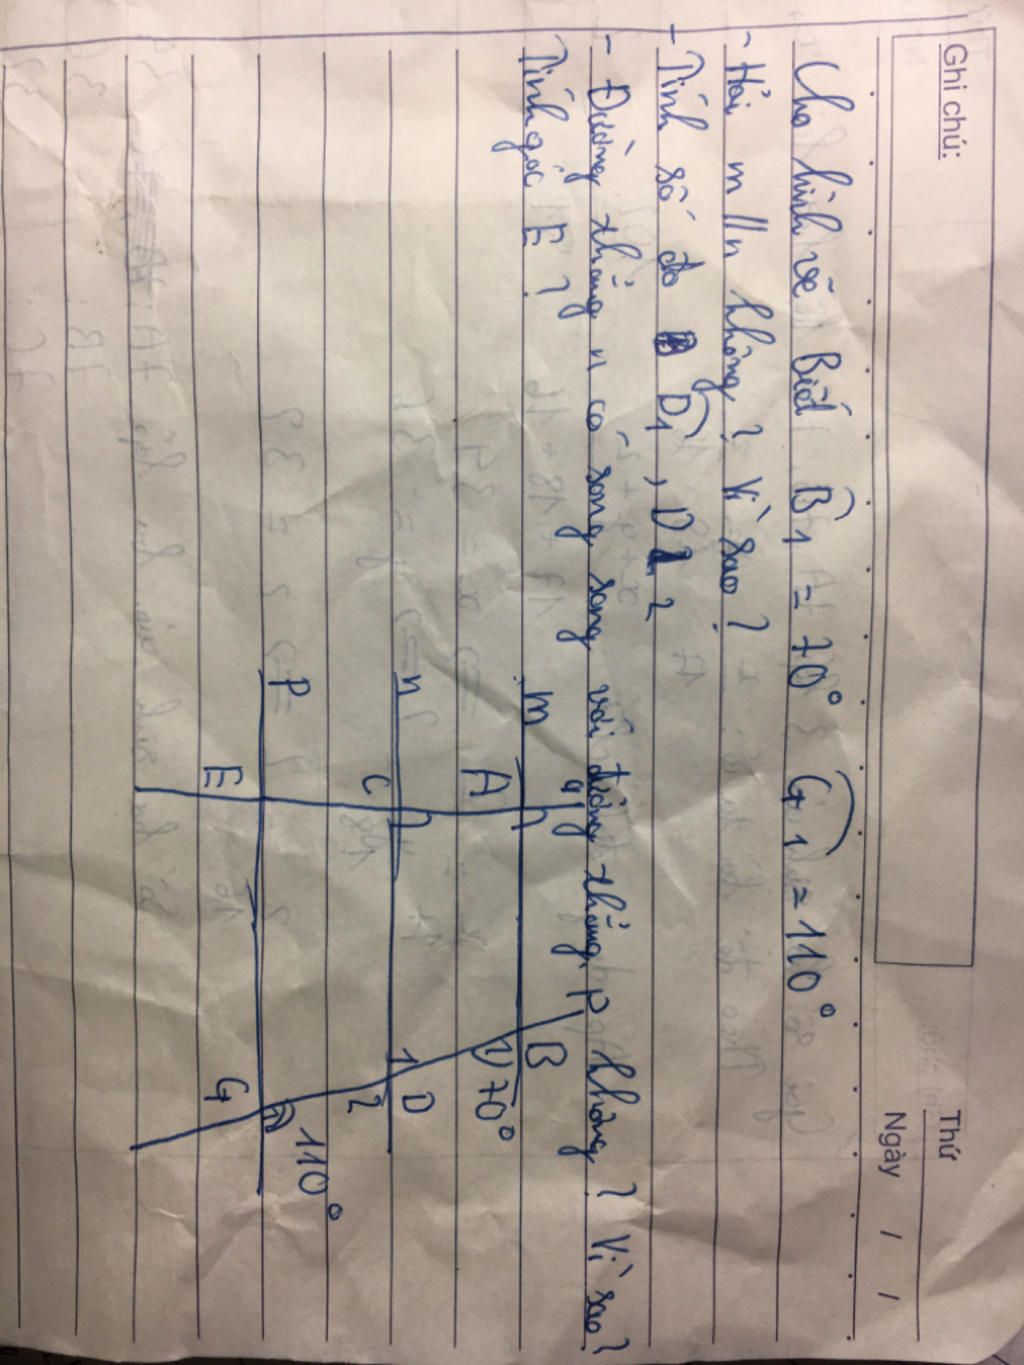 Ghi chú:
Thứ
Ngày / /
Cho hình vẽ Biết B1 = 70° G1 = 110°
- Hỏi m // n không? Vì sao?
- Tính số đo D1, D2?
- Đường thẳng n có song song với đường thẳng p không? Vì sao?
Tính góc E?
a
m A B
70°
n C D
1
2
110°
P
E G